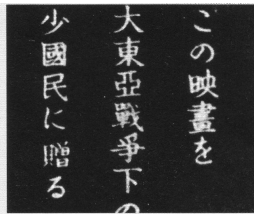 この映畫を
大東亞戰爭下の
少國民に贈る